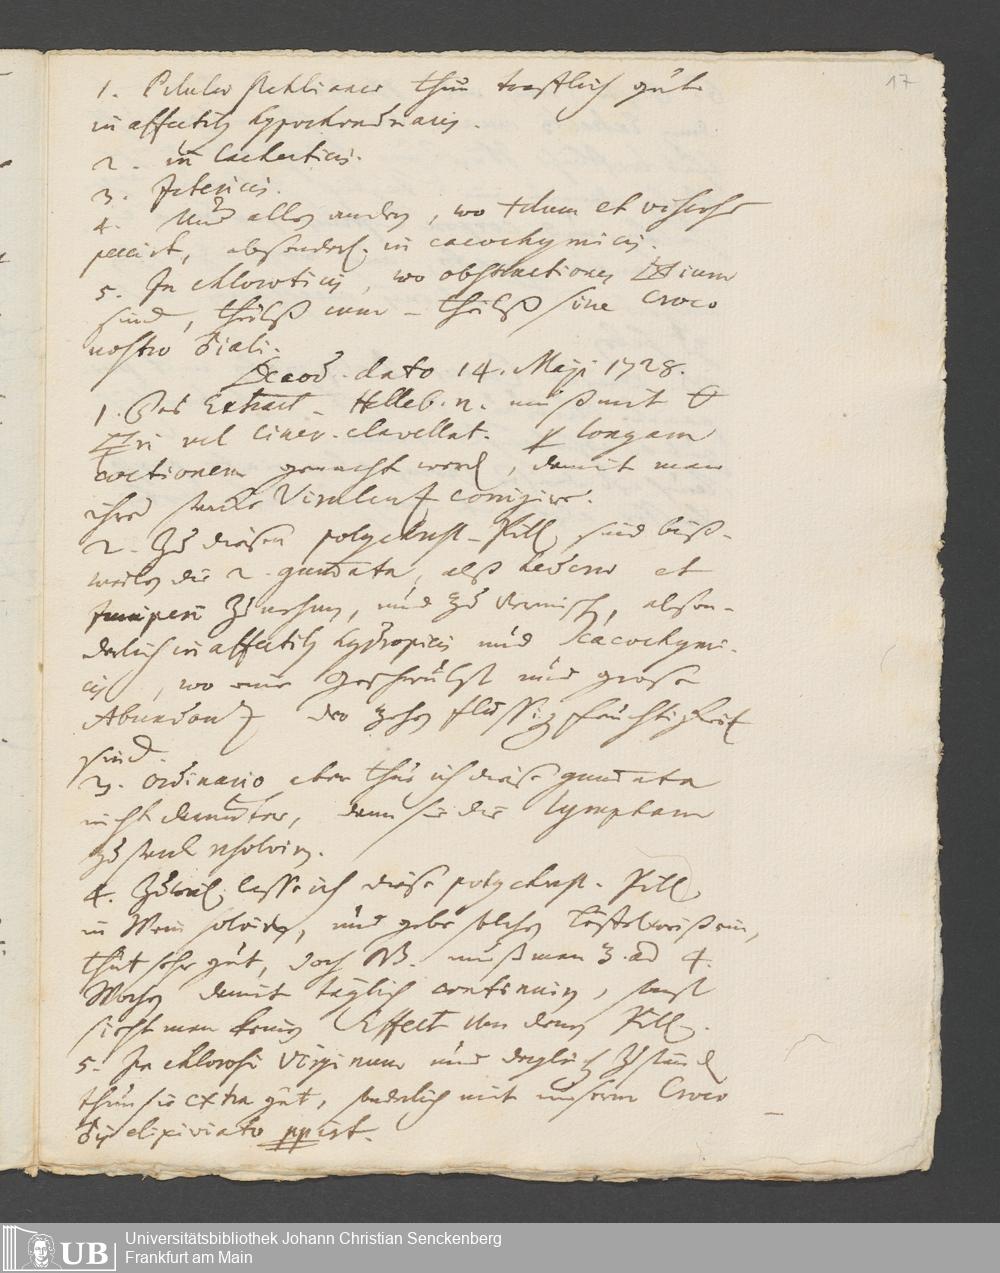 17
1. Pilulae Stahlianae thun trefflich gute
in affectiby hypochondriacis.
2. in Cachecticis.
3. Ictericis.
4. Und allen andern, wo et viscosum
peccirt, absonderl. in cacochymicis.
5. In chloroticis, wo obstructiones
sind, theilß cum - theilß sine Croco
nostro ♂iali.
dato 14. Maji 1728.
1. Das Extract. Helleb. n. muß mit
vel Ciner. clavellat. longam
coctionem gemacht werd, damit man
ihre starcke Virulenz corrigire.
2. Zu diesen polychrest. Pill. sind biß-
weilen die 2. gumata, alß hederae et
juniperi zu nehmen, und zu vermischen, abson-
derlich in affectib hydropicis und Cacochymi-
cis, wo eine Geschwulst und grose
Abundanz der zehen flüssig feuchtigkeit
sind.
3. ordinario aber thue ich diese gumata
nicht darunter, denn sie die lympham
zu starck resolviren.
4. Zuweil. lasse ich diese polychrest. Pill.
in Wein solviren, und gebe solches Löffelweiß ein,
thut sehr gut, doch NB. muß man 3. ad 4.
Wochen damit täglich continuiren, sonst
sieht man keinen Effect von denen Pill.
5. In chlorosi Virginum und dergleich Zuständ
thun sie extra gut, sonderlich mit unserm Croco
♂tis elixiviato
Universitätsbibliothek Johann Christian Senckenberg
Frankfurt am Main
UB